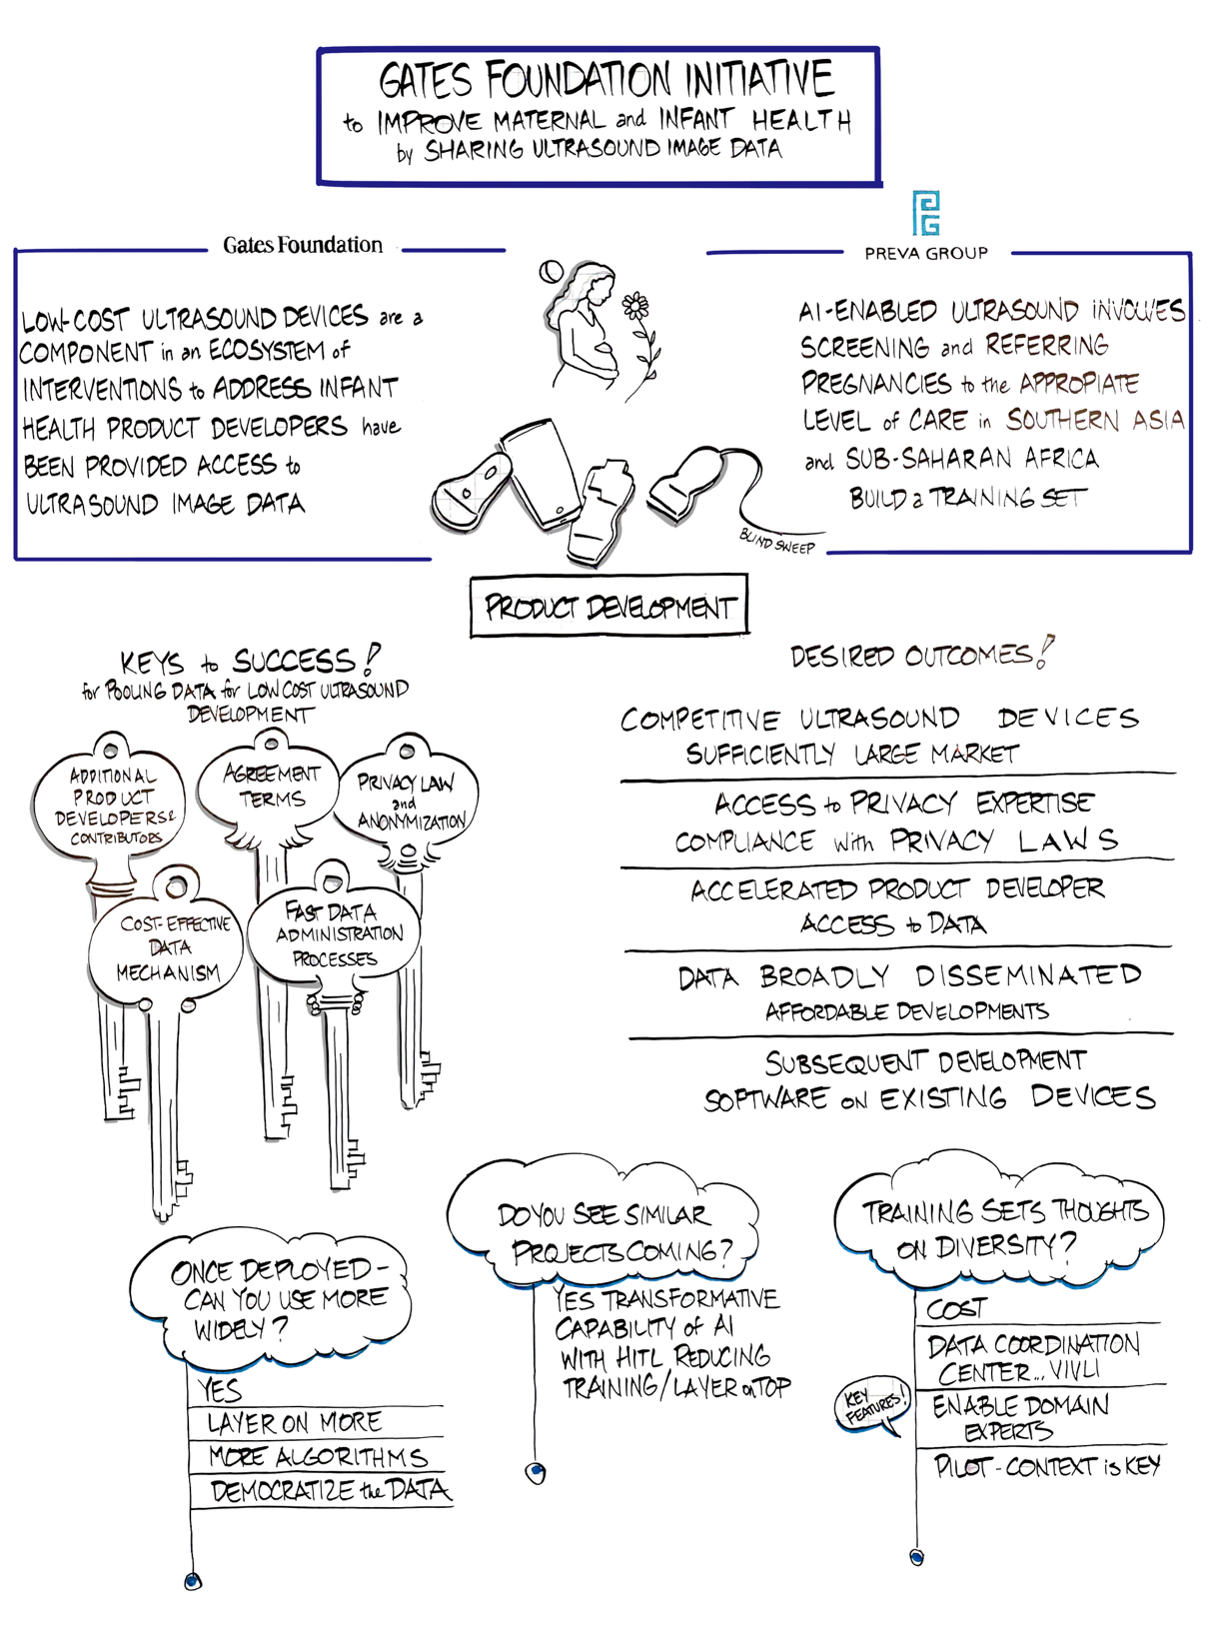 GATES FOUNDATION INITIATIVE
to IMPROVE MATERNAL and INFANT HEALTH
by SHARING ULTRASOUND IMAGE DATA
Gates Foundation
LOW-COST ULTRASOUND DEVICES are a
COMPONENT in an ECOSYSTEM of
INTERVENTIONS to ADDRESS INFANT
HEALTH PRODUCT DEVELOPERS have
BEEN PROVIDED ACCESS to
ULTRASOUND IMAGE DATA
PREVA GROUP
AI-ENABLED ULTRASOUND INVOLVES
SCREENING and REFERRING
PREGNANCIES to the APPROPIATE
LEVEL of CARE in SOUTHERN ASIA
and SUB-SAHARAN AFRICA
BUILD a TRAINING SET
BLIND SWEEP
PRODUCT DEVELOPMENT
KEYS to SUCCESS!
for POOLING DATA for LOW COST ULTRASOUND
DEVELOPMENT
ADDITIONAL
PRODUCT
DEVELOPERS &
CONTRIBUTORS
AGREEMENT
TERMS
PRIVACY LAW
and
ANONYMIZATION
COST-EFFECTIVE
DATA
MECHANISM
FAST DATA
ADMINISTRATION
PROCESSES
DESIRED OUTCOMES!
COMPETITIVE ULTRASOUND DEVICES
SUFFICIENTLY LARGE MARKET
ACCESS to PRIVACY EXPERTISE
COMPLIANCE with PRIVACY LAWS
ACCELERATED PRODUCT DEVELOPER
ACCESS to DATA
DATA BROADLY DISSEMINATED
AFFORDABLE DEVELOPMENTS
SUBSEQUENT DEVELOPMENT
SOFTWARE ON EXISTING DEVICES
ONCE DEPLOYED -
CAN YOU USE MORE
WIDELY?
YES
LAYER ON MORE
MORE ALGORITHMS
DEMOCRATIZE the DATA
DO YOU SEE SIMILAR
PROJECTS COMING?
YES TRANSFORMATIVE
CAPABILITY of AI
WITH HITL REDUCING
TRAINING/LAYER on TOP
TRAINING SETS THOUGHTS
ON DIVERSITY?
COST
DATA COORDINATION
CENTER... VIVLI
KEY
FEATURES!
ENABLE DOMAIN
EXPERTS
PILOT - CONTEXT is KEY